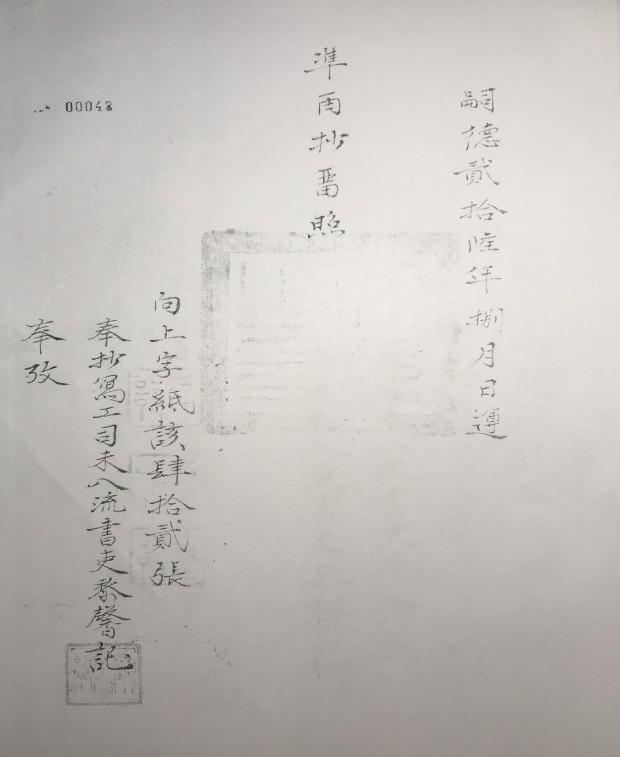 嗣德貳拾陸年捌月日遵
準抄畱照
向上字紙該肆拾貳張
奉抄寫工司未入流書吏黎馨記
奉攷